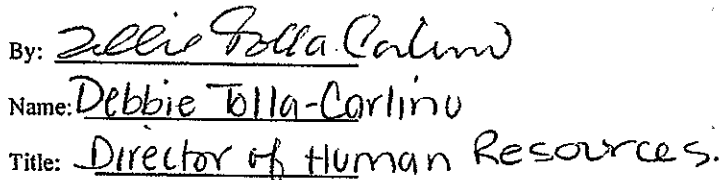 By: Debbie Tolla-Carlino
Name: Debbie Tolla-Carlino
Title: Director of Human Resources.